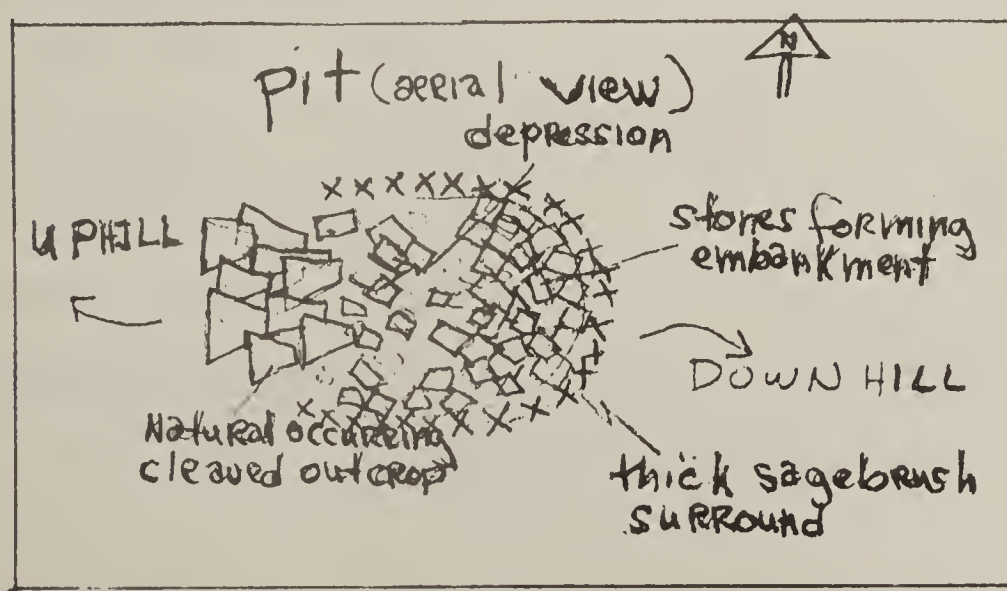 N
pit (aerial view)
depression
UPHILL
stones forming
embankment
DOWNHILL
Natural occurring
cleaved outcrop
thick sagebrush
surround